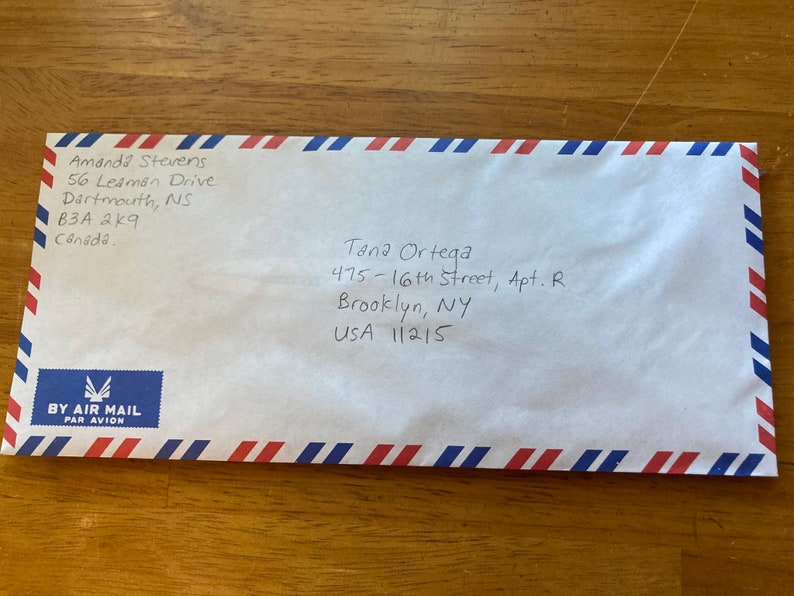 Amanda Stevens
56 Leaman Drive
Dartmouth, NS
B3A 2K9
Canada.
Tana Ortega
475-16th Street, Apt. R
Brooklyn, NY
USA 11215
BY AIR MAIL
PAR AVION